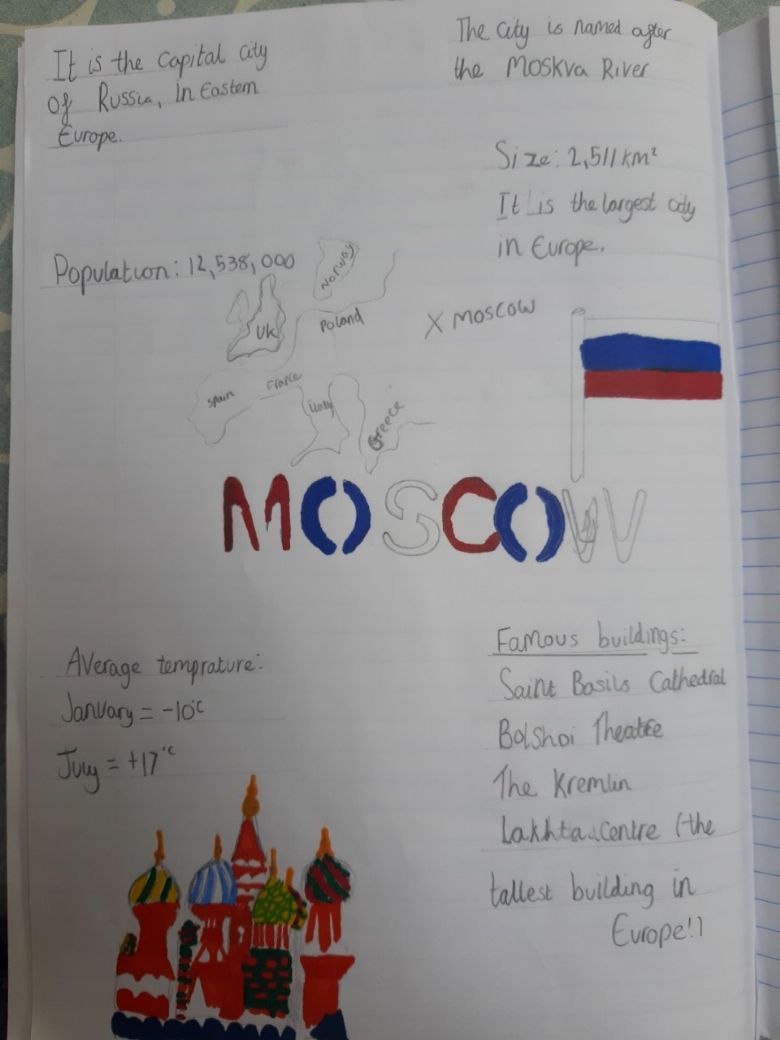 It is the Capital city
of Russia, in Eastern
Europe.
The city is named after
the Moskva River
Size: 2,511 km²
It is the largest city
in Europe.
Population: 12,538,000
Norway
UK
Poland
X MOSCOW
Spain
France
Italy
Greece
MOSCOW
Average temprature:
January = -10°C
July = +17°C
Famous buildings:
Saint Basils Cathedral
Bolshoi Theatre
The Kremlin
Lakhta Centre (the
tallest building in
Europe!)